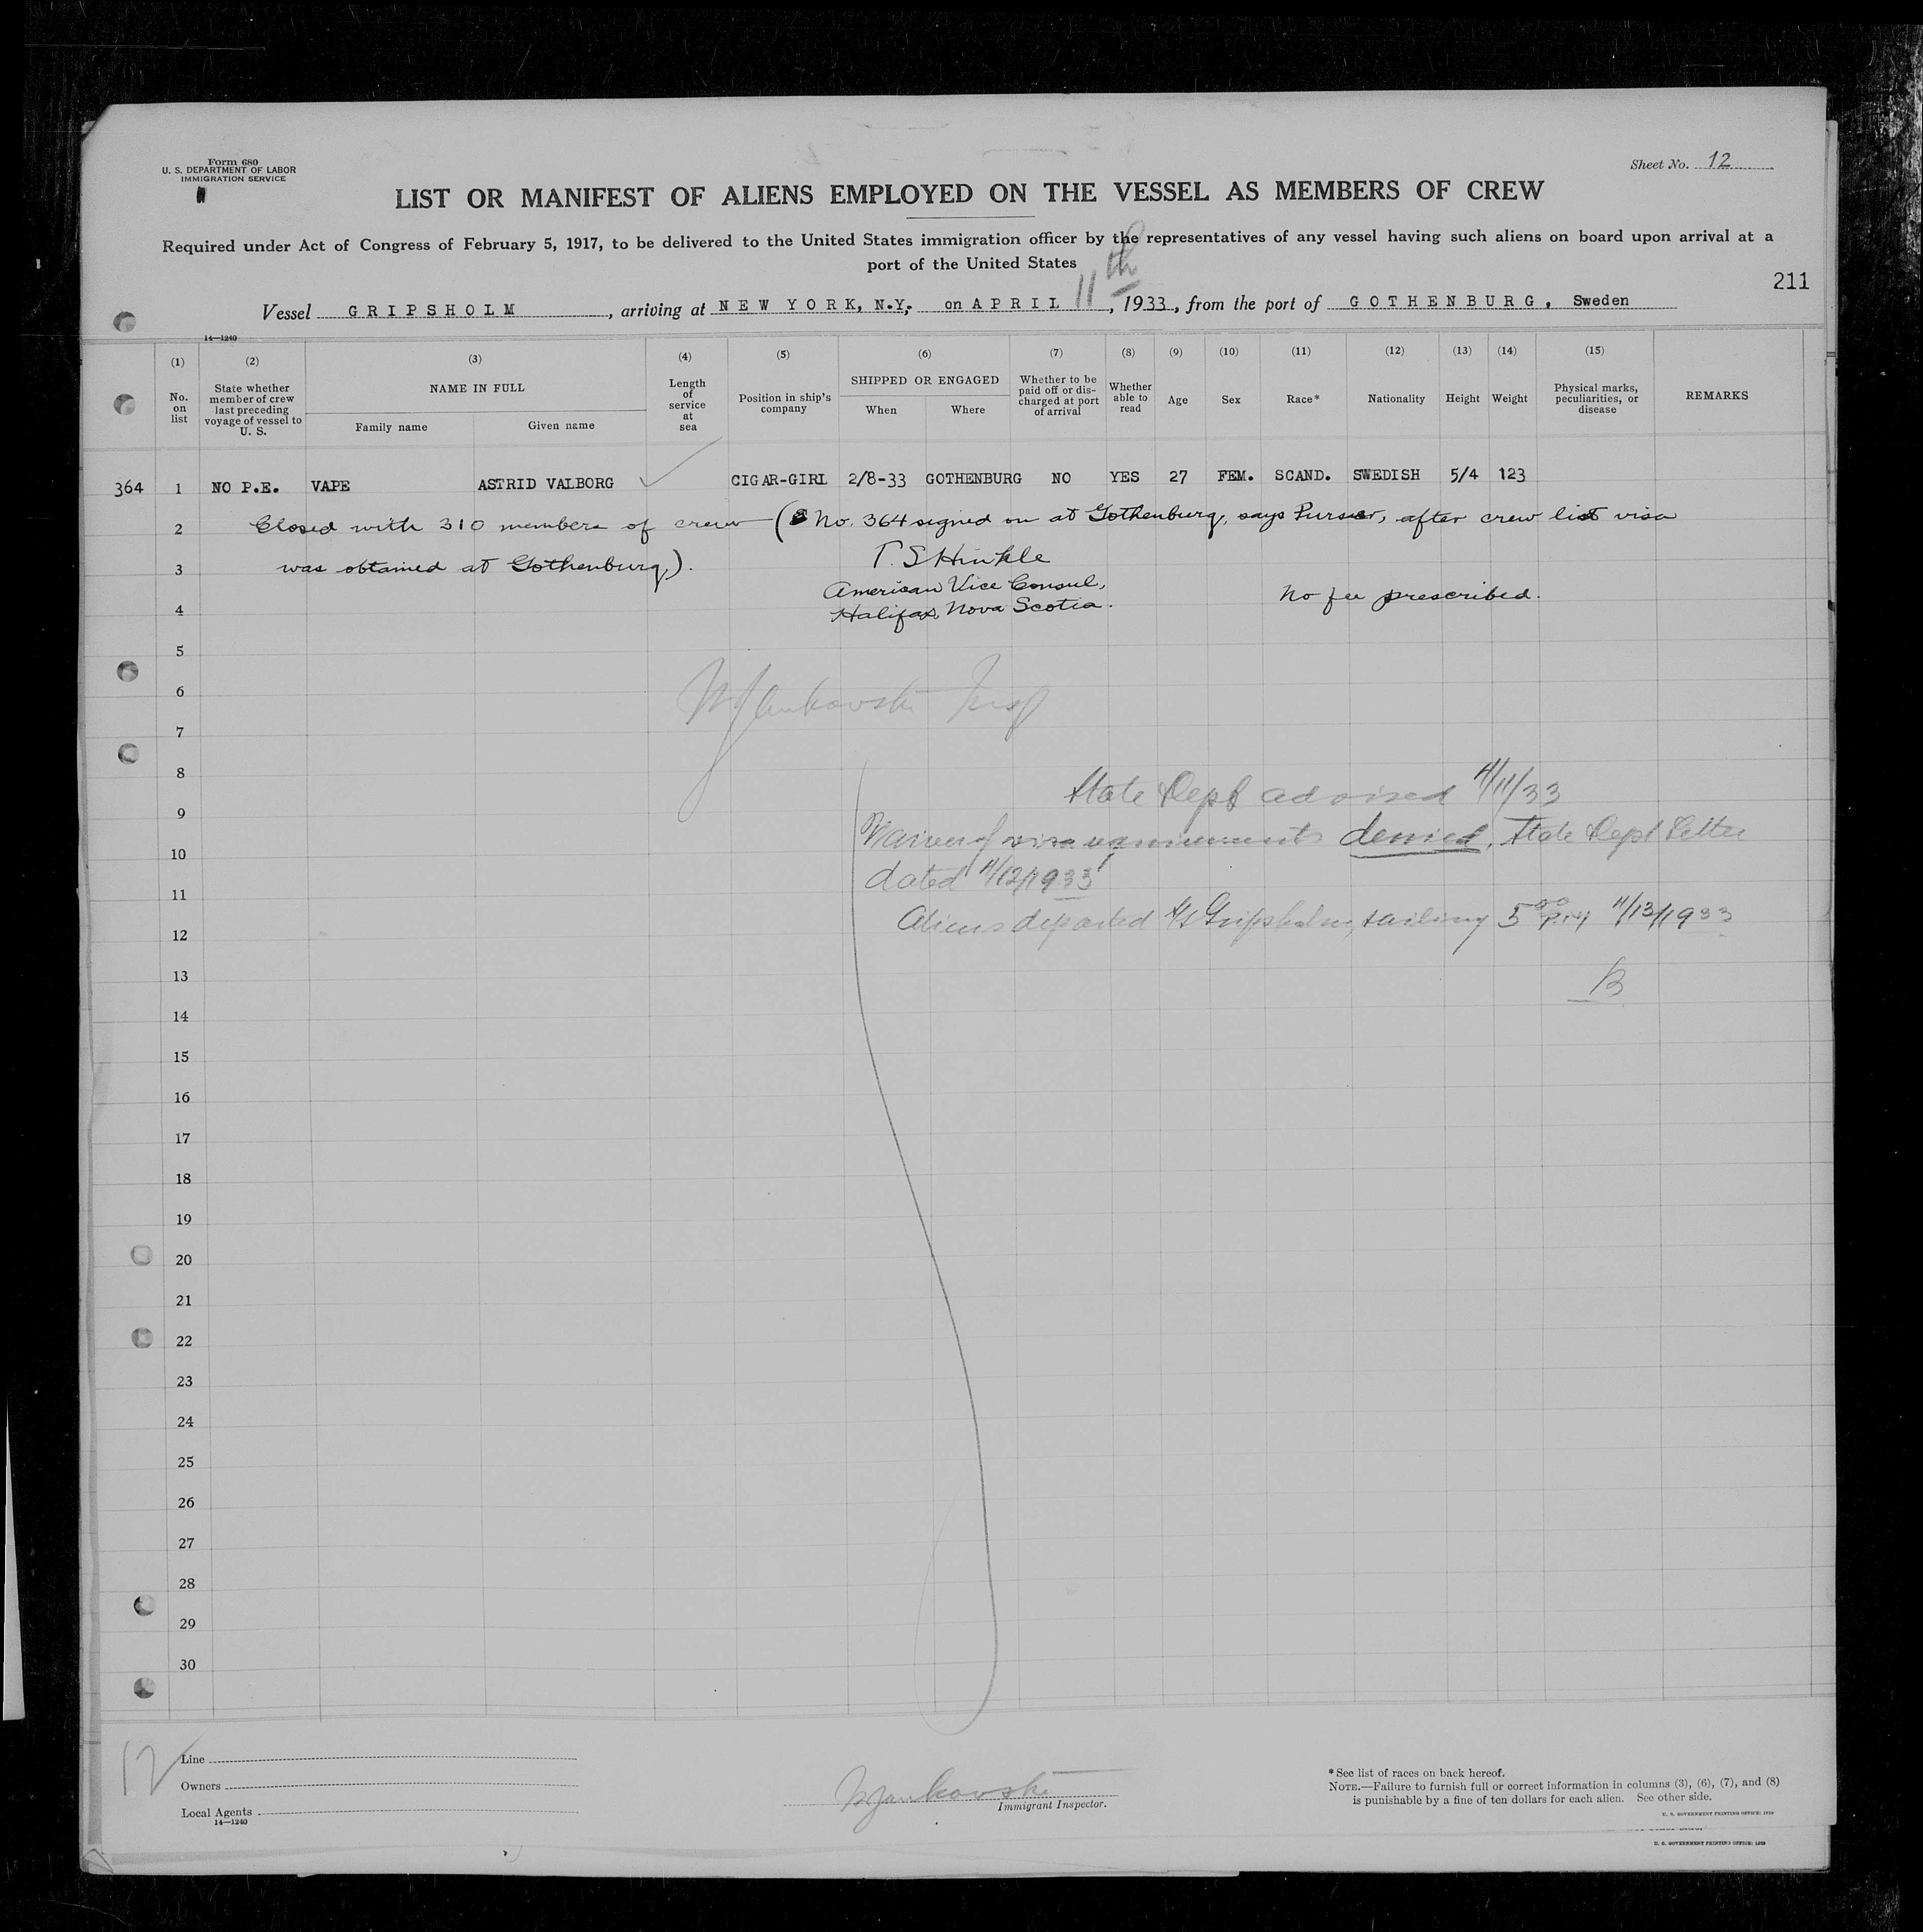 Form 680
U. S. DEPARTMENT OF LABOR
IMMIGRATION SERVICE
Sheet No. 12
LIST OR MANIFEST OF ALIENS EMPLOYED ON THE VESSEL AS MEMBERS OF CREW
Required under Act of Congress of February 5, 1917, to be delivered to the United States immigration officer by the representatives of any vessel having such aliens on board upon arrival at a
port of the United States
211
Vessel GRIPSHOLM, arriving at NEW YORK, N.Y., on APRIL 11th, 1933, from the port of GOTHENBURG, Sweden
14—1240
(1) (2) (3) (4) (5) (6) (7) (8) (9) (10) (11) (12) (13) (14) (15)
No. on list
State whether member of crew last preceding voyage of vessel to U. S.
NAME IN FULL
Family name
Given name
Length of service at sea
Position in ship's company
SHIPPED OR ENGAGED
When
Where
Whether to be paid off or discharged at port of arrival
Whether able to read
Age
Sex
Race*
Nationality
Height
Weight
Physical marks, peculiarities, or disease
REMARKS
364 1 NO P.E. VAPE ASTRID VALBORG CIGAR-GIRL 2/8-33 GOTHENBURG NO YES 27 FEM. SCAND. SWEDISH 5/4 123
2 Closed with 310 members of crew (No. 364 signed on at Gothenburg, says Purser, after crew list visa
3 was obtained at Gothenburg.).
T. S Hinkle
American Vice Consul,
No fee prescribed.
4 Halifax, Nova Scotia.
5
6
Insp
7
8
State Dept advised 4/11/33
9
Waiver of visa requirements denied, State Dept Letter
10
dated 4/12/1933
11
Aliens departed S/S Gripsholm, sailing 5 00 P.M. 4/13/1933
12
13
B
14
15
16
17
18
19
20
21
22
23
24
25
26
27
28
29
30
12
Line
Owners
Local Agents
14—1240
Immigrant Inspector.
* See list of races on back hereof.
NOTE.—Failure to furnish full or correct information in columns (3), (6), (7), and (8)
is punishable by a fine of ten dollars for each alien. See other side.
U. S. GOVERNMENT PRINTING OFFICE: 1929
U. S. GOVERNMENT PRINTING OFFICE: 1929